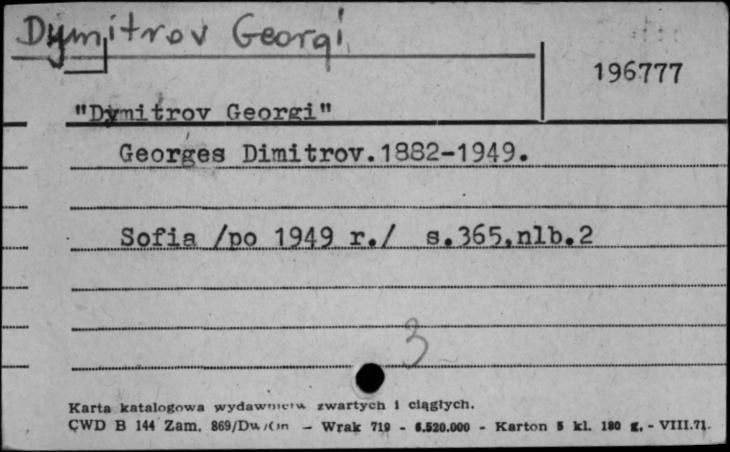 Dymitrov Georgi
196777
"Dymitrov Georgi"
Georges Dimitrov.1882-1949.
Sofia /po 1949 r./ s.365,nlb.2
3
Karta katalogowa wydawnictw zwartych i ciągłych.
CWD B 144 Zam. 869/Dw/ – Wrak 719 - 6.520.000 - Karton 5 kl. 180 g. - VIII.71.